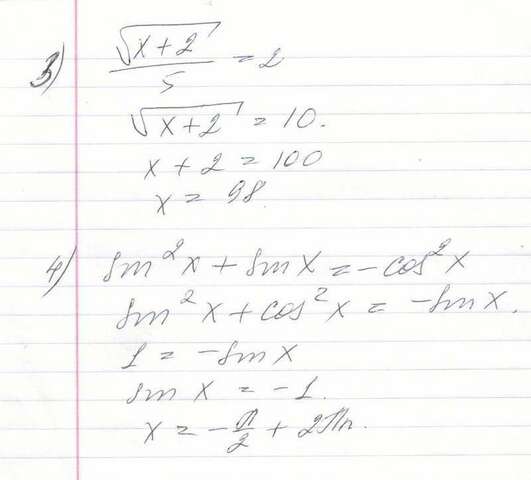 3) √(x+2)/5 = 2
√(x+2) = 10.
x + 2 = 100
x = 98
4) sin²x + sin x = -cos²x
sin²x + cos²x = -sin x.
1 = -sin x
sin x = -1.
x = -π/2 + 2πn.